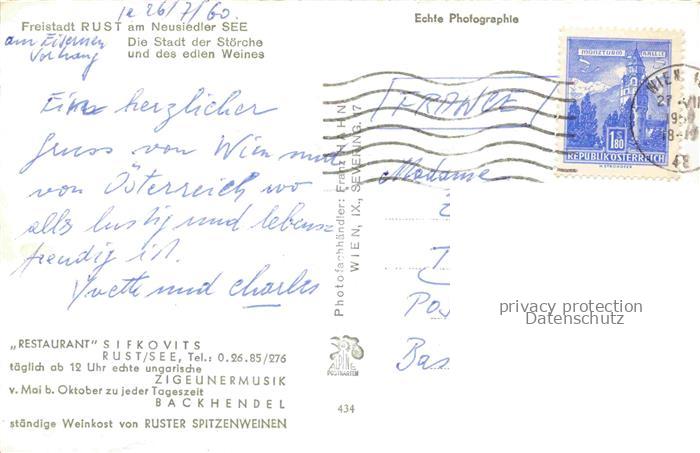 le 26/7/60.
Freistadt RUST am Neusiedler SEE
am Eisernen
Vorhang
Die Stadt der Störche
und des edlen Weines
Ein herzlicher
Gruss von Wien und
von Österreich wo
alles lustig und lebens-
freudig ist.
Yvette und Charles
„RESTAURANT" SIFKOVITS
RUST/SEE, Tel.: 0.26.85/276
täglich ab 12 Uhr echte ungarische
ZIGEUNERMUSIK
v. Mai b. Oktober zu jeder Tageszeit
BACKHENDEL
ständige Weinkost von RUSTER SPITZENWEINEN
Photofachhändler: Franz HAHN
WIEN, IX., SEVERING. 7
ALPINE
POSTKARTEN
434
Echte Photographie
(FRANCE)
Madame
Bas
MÜNZTURM HALL I. T.
1S80
REPUBLIK ÖSTERREICH
WIEN
27. VII
18-19
privacy protection
Datenschutz